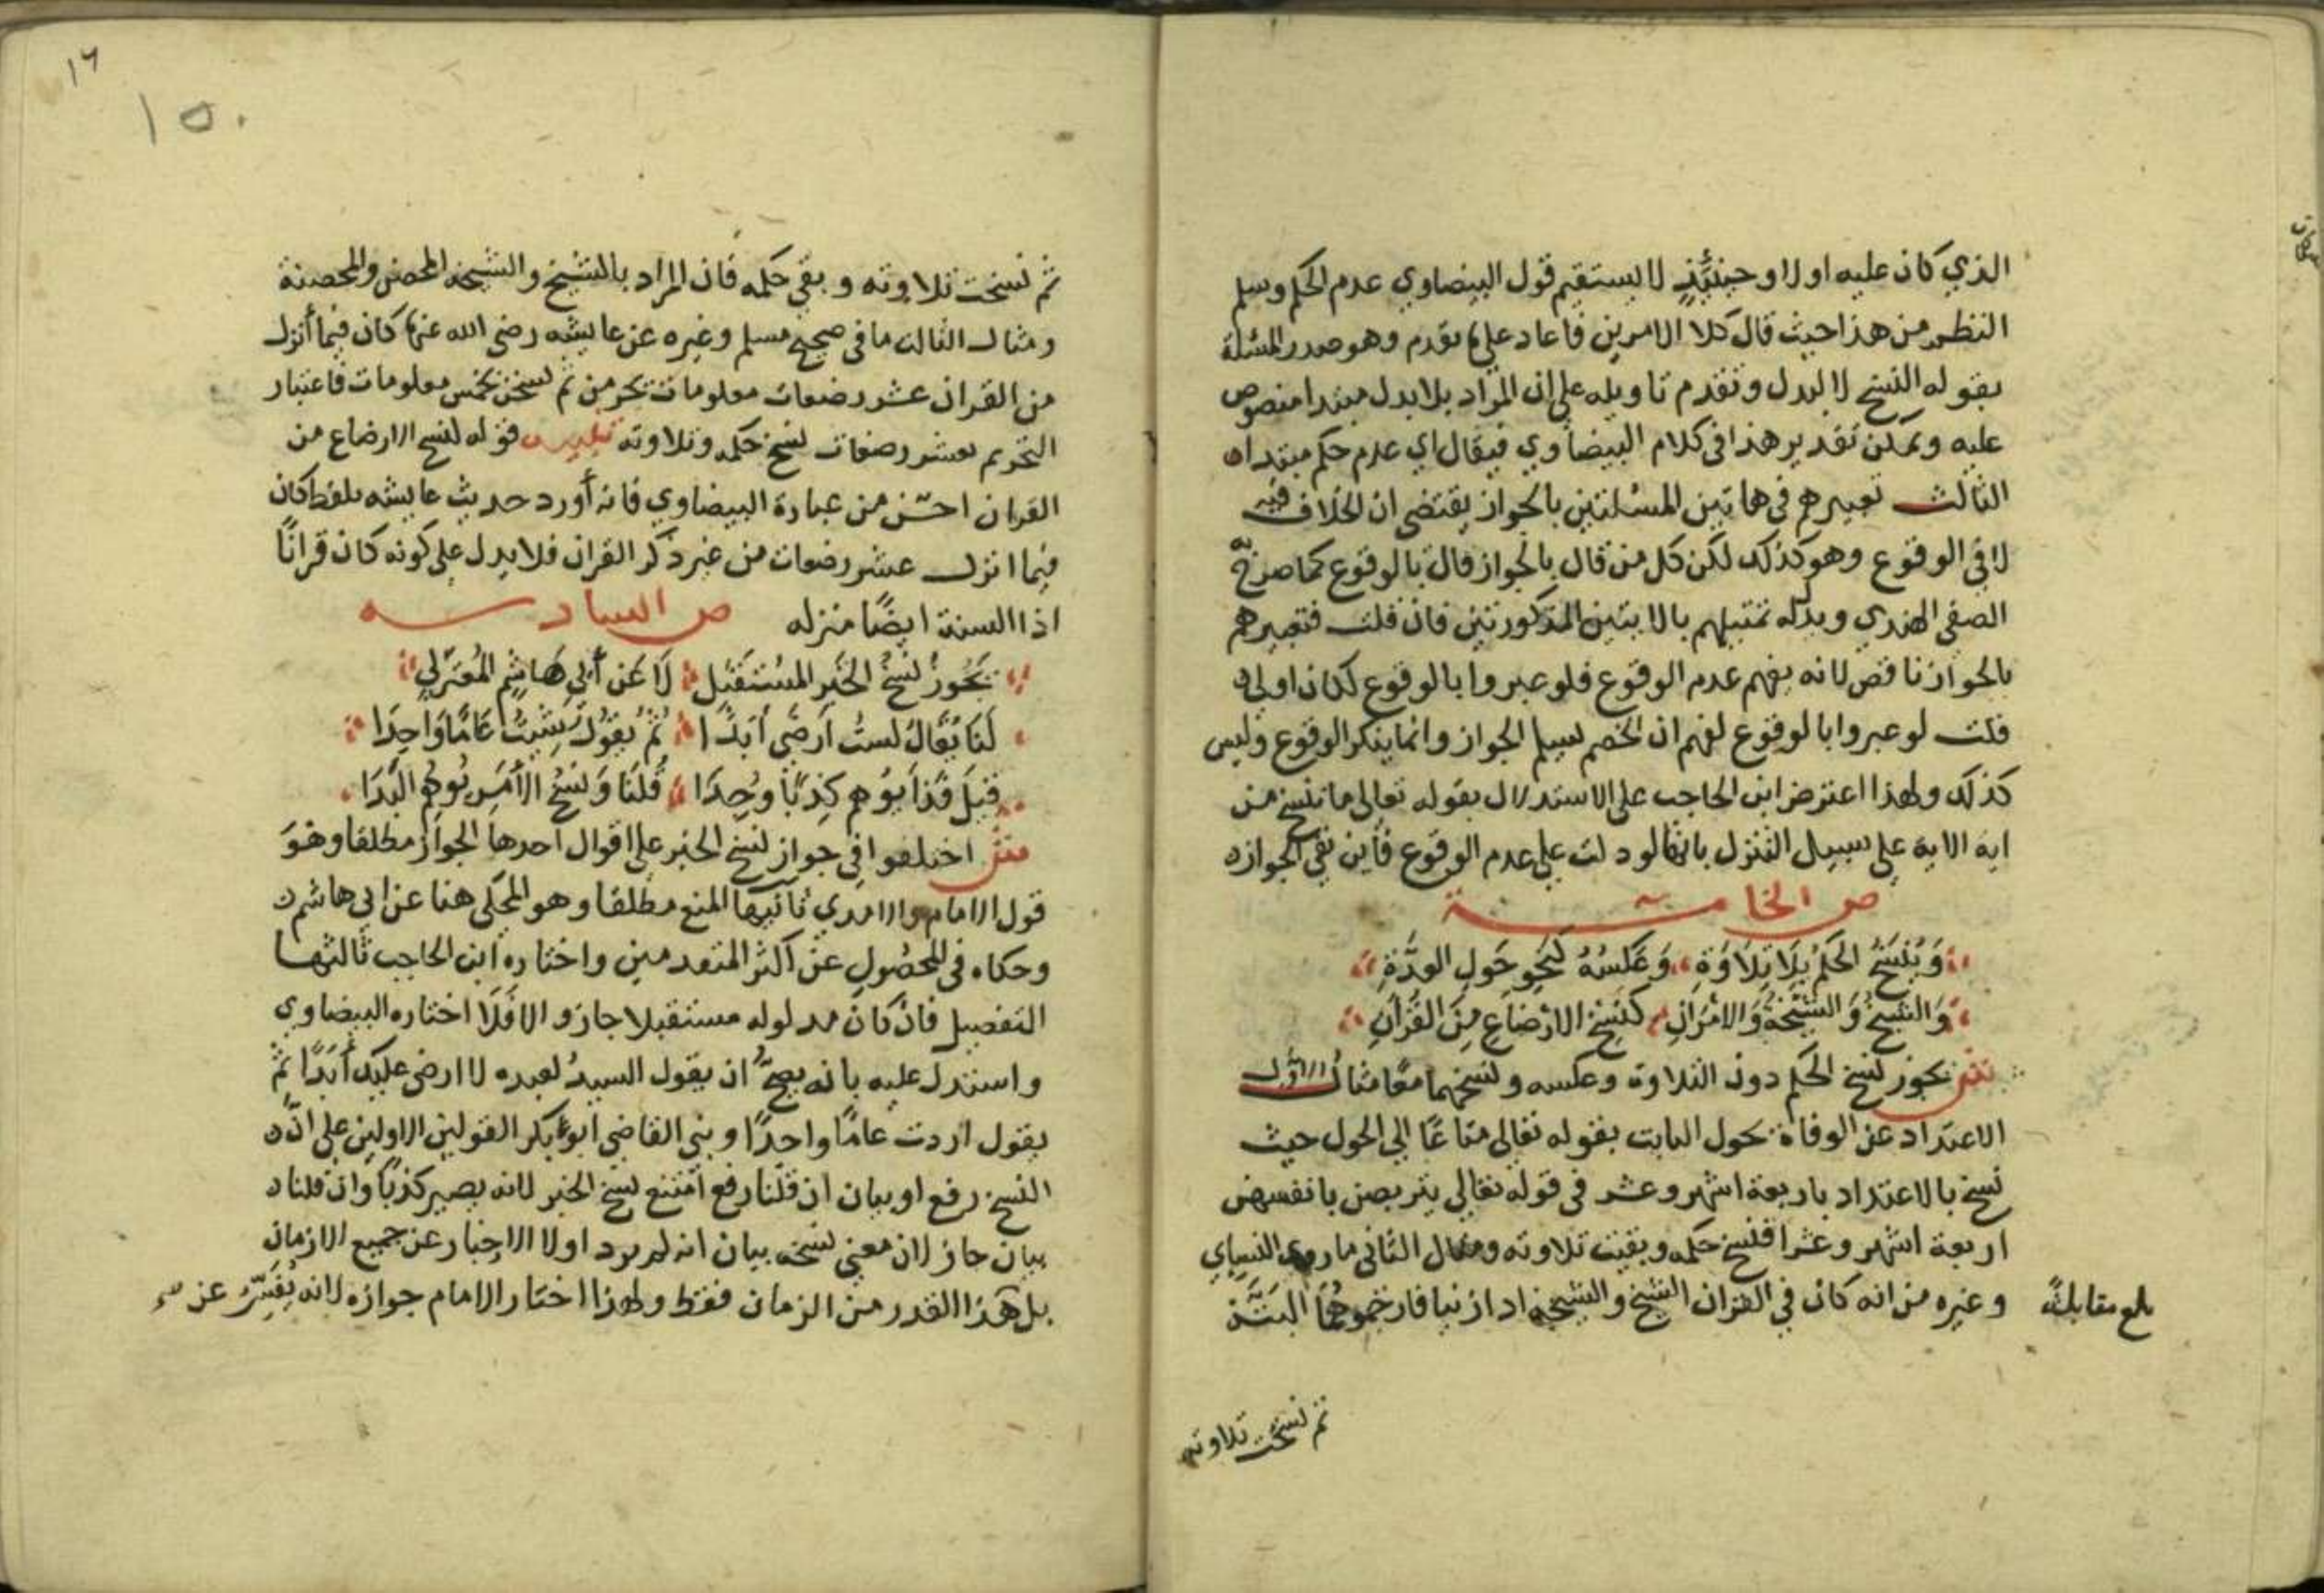 الذي كان عليه اولا وحينئذٍ لا يستقيم قول البيضاوي عدم الحكم وسلم
النظم من هذا حيث قال كلا الامرين فاعاد على ما تقدم وهو صدر المسئلة
بقوله النسخ لا لبدل وتقدم تاويله على ان المراد بلا بدل مبتدا منصوص
عليه ويمكن تقدير هذا في كلام البيضاوي فيقال اي عدم حكم مبتدا
الثالث تعبيرهم في هاتين المسئلتين بالجواز يقتضي ان الخلاف فيه
لا في الوقوع وهو كذلك لكن كل من قال بالجواز قال بالوقوع كما صرح به
الصفي الهندي ويدل له تمثيلهم بالايتين المذكورتين فان قلت فتعبيرهم
بالجواز ناقص لانه يفهم عدم الوقوع فلو عبروا بالوقوع لكان اولى
قلت لو عبروا بالوقوع لفهم ان الخصم يسلم الجواز وانما ينكر الوقوع وليس
كذلك ولهذا اعترض ابن الحاجب على الاستدلال بقوله تعالى ما ننسخ من
اية الاية على سبيل التنزل بانها لو دلت على عدم الوقوع فاين نفي الجواز
ص الخامسة
وَيُنْسَخُ الحكم بِلَا تِلَاوَةِ وَعَكْسُهُ كَنَحْوِ حَولِ العِدَّةِ
وَالشَّيْخُ وَالشَّيْخَةُ وَالامْرَانِ كَنَسْخِ الارْضَاعِ مِنَ القُرْآنِ
ش يجوز نسخ الحكم دون التلاوة وعكسه ونسخهما معًا مثال الاول
الاعتداد عن الوفاة بحول الثابت بقوله تعالى متاعًا الى الحول حيث
نسخ بالاعتداد باربعة اشهر وعشر في قوله تعالى يتربصن بانفسهن
اربعة اشهر وعشرا فنسخ حكمه وبقيت تلاوته ومثال الثاني ما روى النسائي
وغيره من انه كان في القران الشيخ والشيخة اذا زنيا فارجموهما البتة
بلغ مقابلةً
ثم نسخت تلاوته
١٦
١٥٠
ثم نسخت تلاوته وبقي حكمه فان المراد بالشيخ والشيخة المحصن والمحصنة
ومثال الثالث ما في صحيح مسلم وغيره عن عايشه رضي الله عنها كان فيما أنزل
من القران عشر رضعات معلومات يحرمن ثم نسخن بخمس معلومات فاعتبار
التحريم بعشر رضعات نسخ حكمه وتلاوته تنبيه قوله نسخ الارضاع من
القران احسن من عبارة البيضاوي فانه أورد حديث عايشه بلفظ كان
فيما انزل عشر رضعات من غير ذكر القران فلا يدل على كونه كان قرانًا
اذ السنة ايضًا منزله ص السادسه
يَجُوزُ نَسْخُ الخَبَرِ المُسْتَقْبَلِ لَا عَن أبِي هَاشِمِ المُعْتَزِلي
لَنَا يُقَالُ لستُ أَرضَى أبَدًا ثُمَّ يَقُولُ سَنَةً عَامًا وَاحِدَا
قِيلَ فَذَا يُوهِم كِذْبًا وُجِدَا قُلنَا وَنَسْخُ الأَمْرِ يُوهِمُ البَدَا
ش اختلفوا في جواز نسخ الخبر على اقوال احدها الجواز مطلقا وهو
قول الامام والامدي ثانيها المنع مطلقا وهو المحكي هنا عن ابي هاشم
وحكاه في المحصول عن اكثر المتقدمين واختاره ابن الحاجب ثالثها
التفصيل فان كان مدلوله مستقبلا جاز والا فَلَا اختاره البيضاوي
واستدل عليه بانه يصحُّ ان يقول السيدُ لعبده لا ارضى عليك أبدًا ثم
يقول اردت عامًا واحدًا وبنى القاضي ابو بكر القولين الاولين على ان
النسخ رفع او بيان ان قلنا رفع امتنع نسخ الخبر لانه يصير كذبًا وان قلنا
بيان جاز لان معنى نسخه بيان انه لم يرد اولا الاخبار عن جميع الازمان
بل هذا القدر من الزمان فقط ولهذا اختار الامام جوازه لانه يُفَسِّر عن